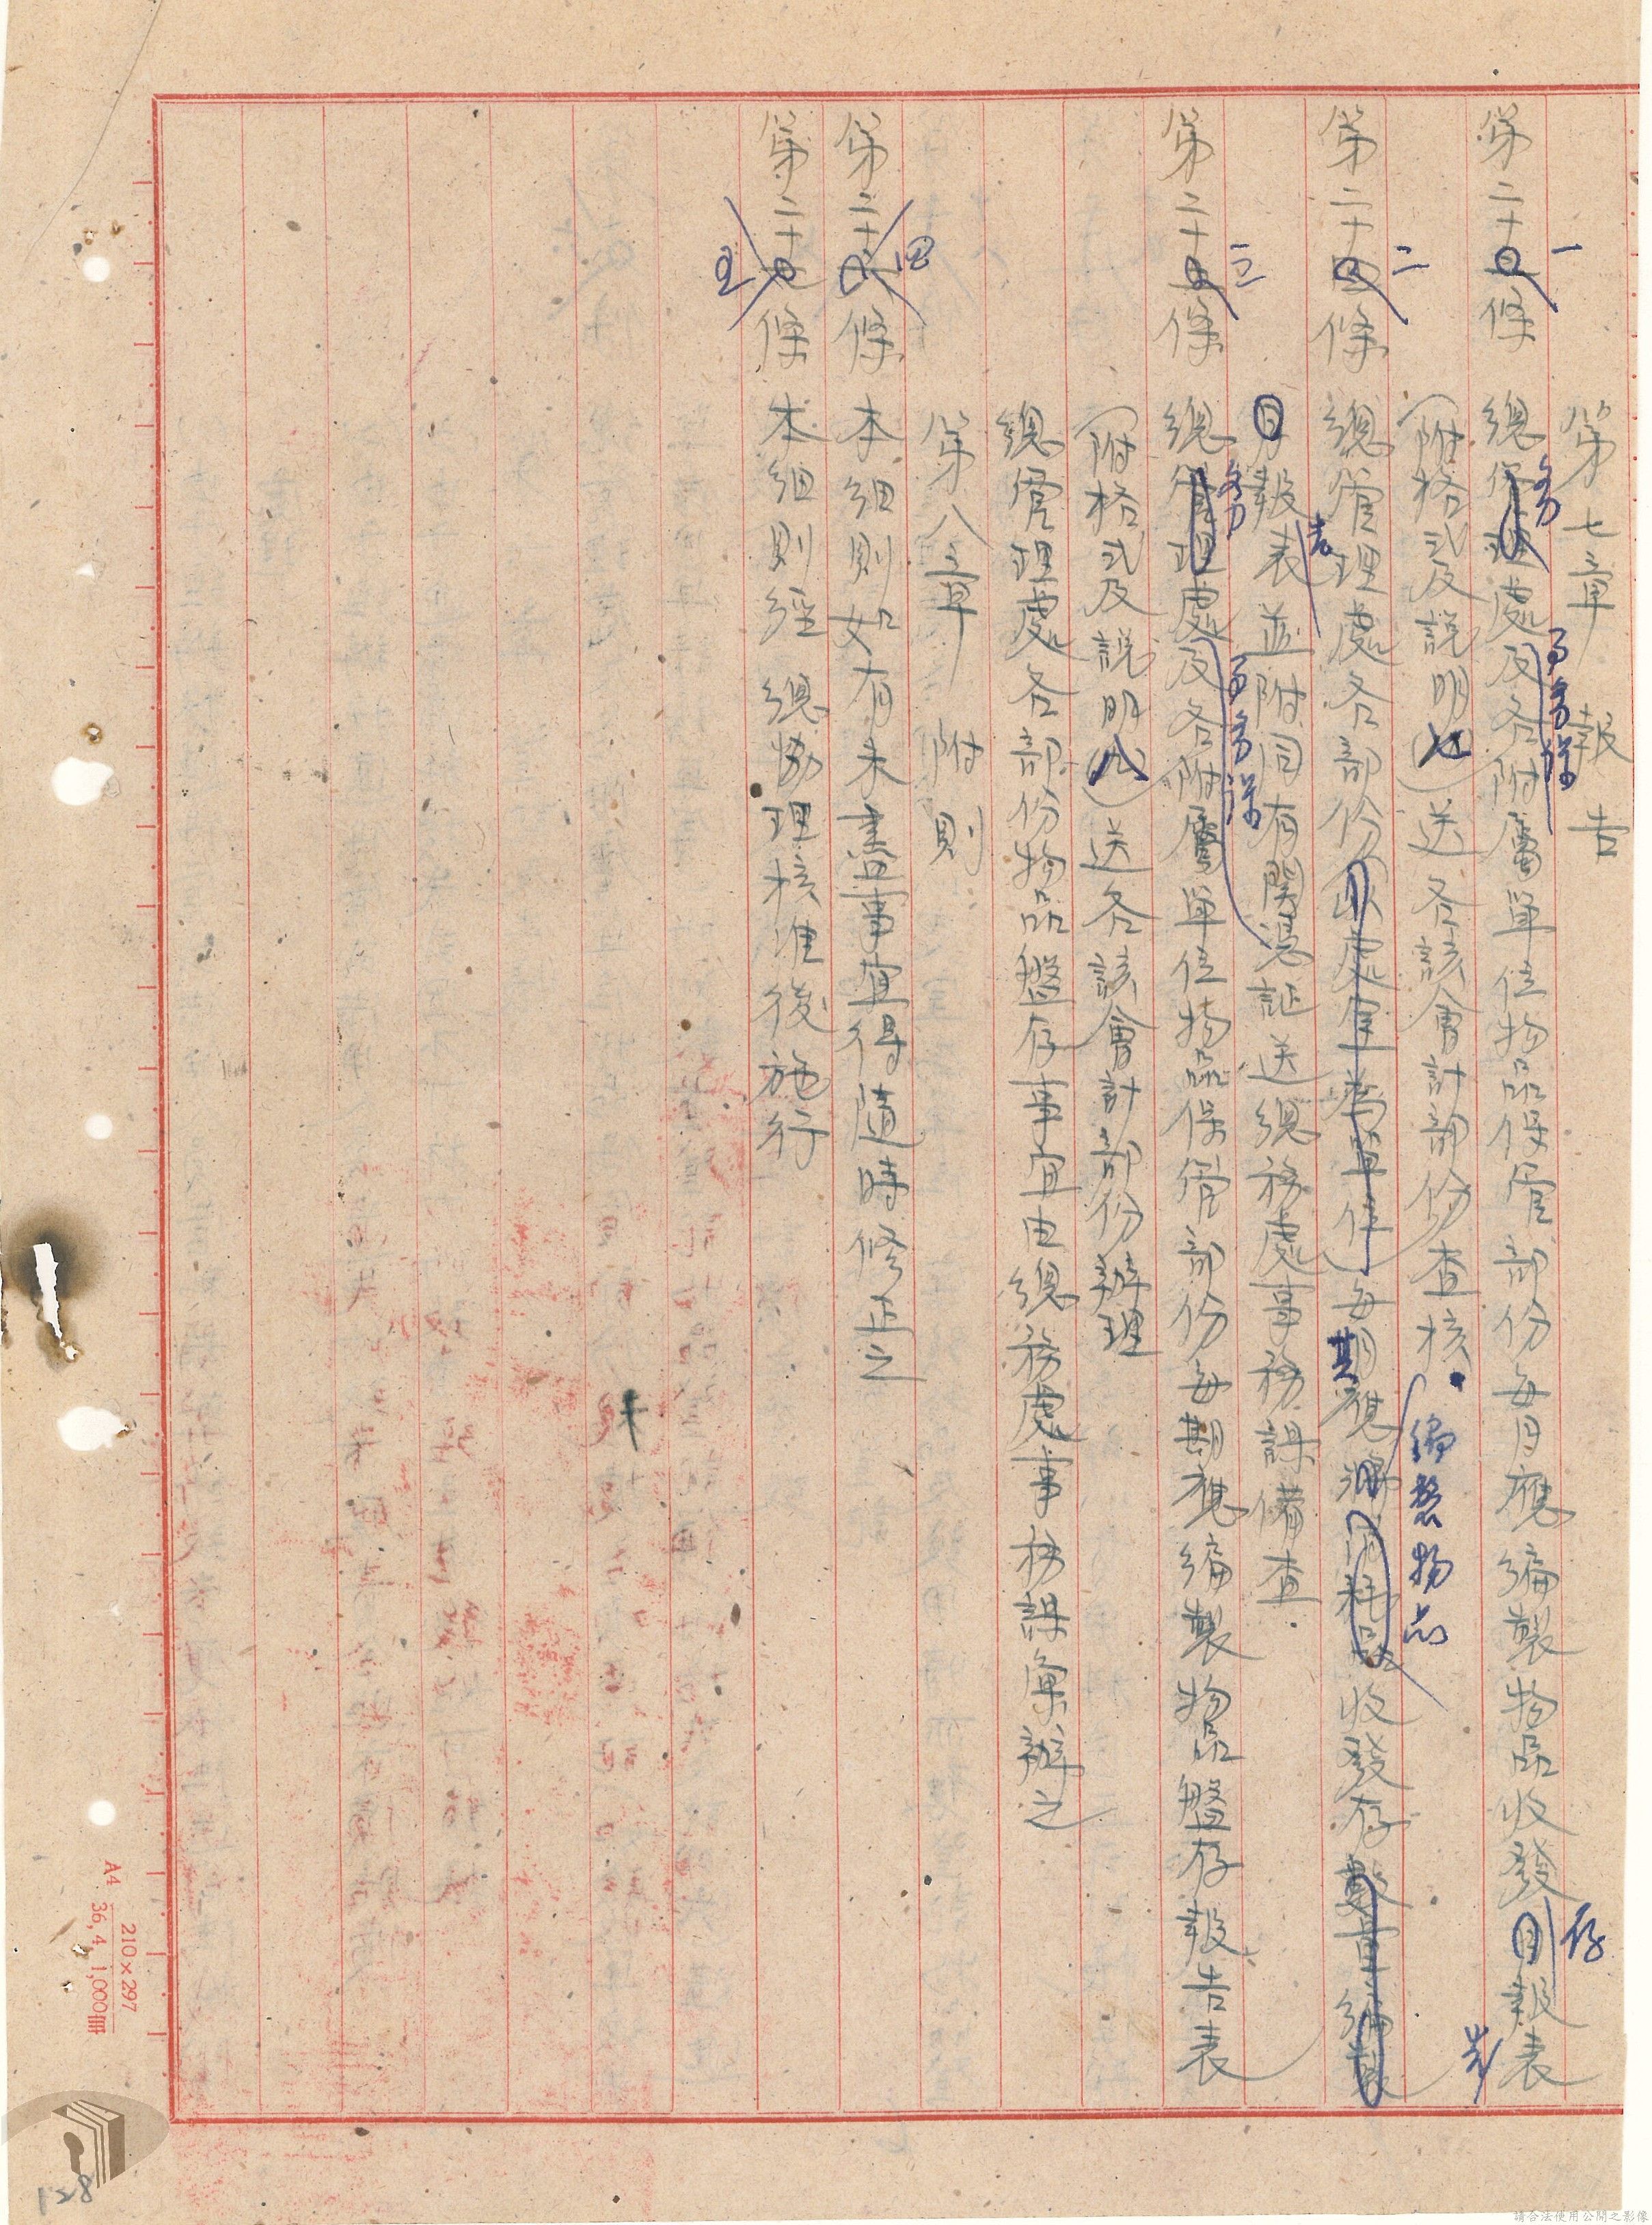 第七章 報告
第二十三條 總管理處及各附屬單位物品保管部份每月應編製物品收發月報表
一
務
事務課
存
告
(附格式及說明七)送各該會計部份查核.
第二十四條 總管理處各部份(以處室為單位)每期應編
二
期
編製物品
收發存數量編製
月報表並附同有關憑証送總務處事務課備查.
告
第二十五條 總管理處及各附屬單位物品保管部份每期應編製物品盤存報告表
三
務
事務課
(附格式及說明八)送各該會計部份辦理
總管理處各部份物品盤存事宜由總務處事務課彙辦之
第八章 附則
第二十六條 本細則如有未盡事宜得隨時修正之
四
第二十七條 本細則經 總協理核准後施行
A4 210×297
36,4 1,000冊
128
請合法使用公開之影像